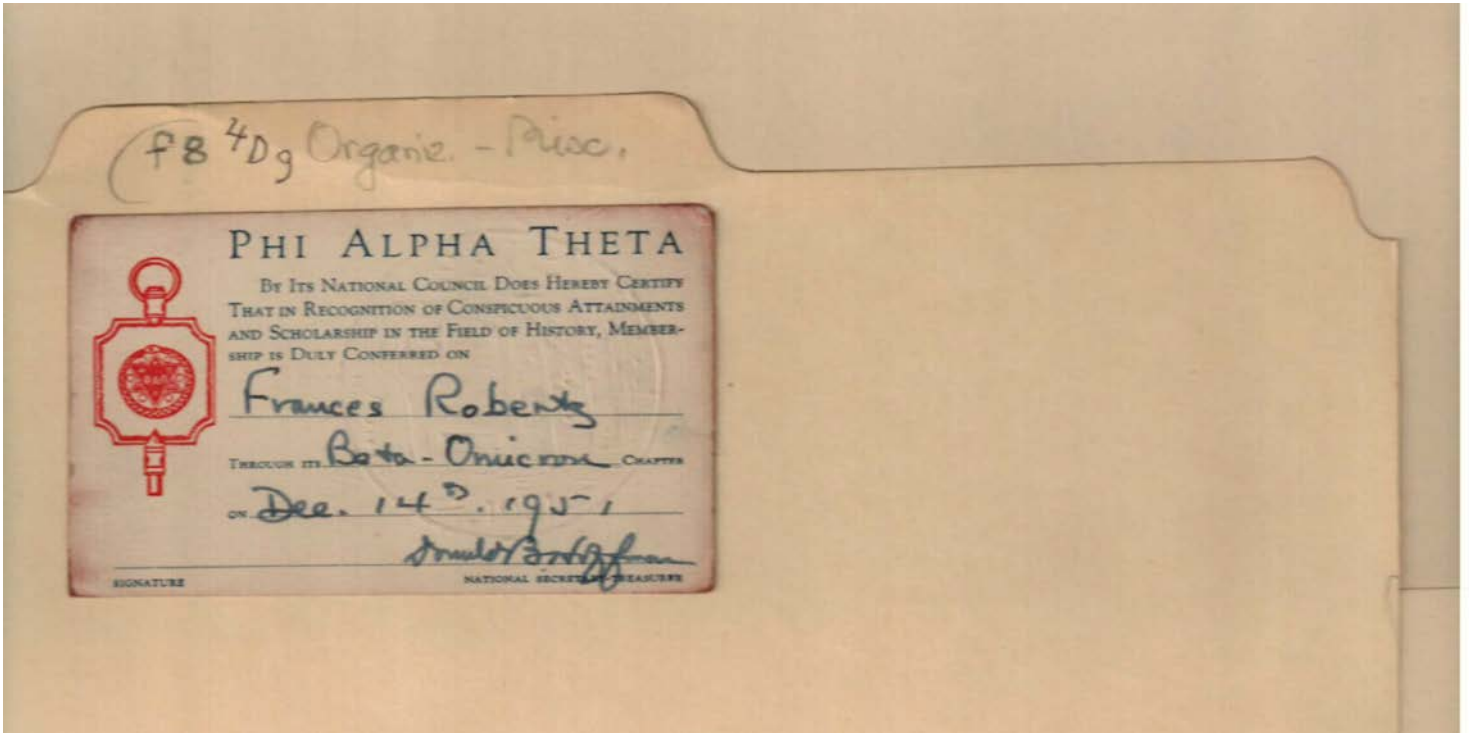 f8 4Dg Organiz. - Misc.
PHI ALPHA THETA
BY ITS NATIONAL COUNCIL DOES HEREBY CERTIFY
THAT IN RECOGNITION OF CONSPICUOUS ATTAINMENTS
AND SCHOLARSHIP IN THE FIELD OF HISTORY, MEMBER-
SHIP IS DULY CONFERRED ON
Frances Roberts
THROUGH ITS Beta-Omicron CHAPTER
ON Dec. 14 . 1951
Donald B. Hoffman
SIGNATURE NATIONAL SECRETARY-TREASURER